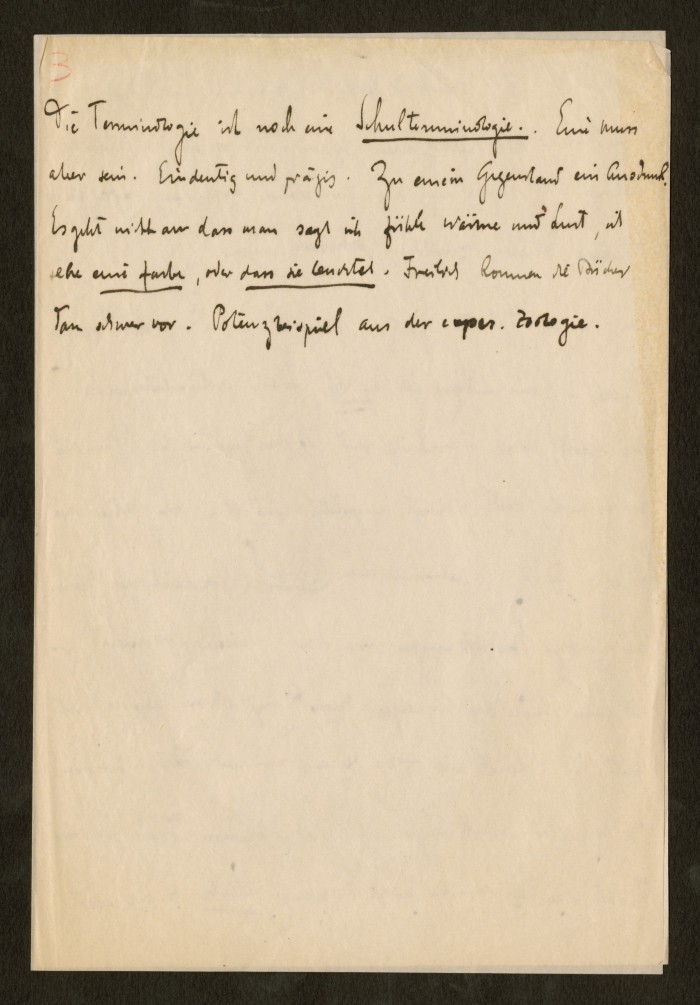 3
Die Terminologie ist noch eine Schulterminologie. . Eine muss
aber sein. Eindeutig und präzis. Zu einem Gegenstand ein Ausdruck.
Es geht nicht an dass man sagt ich fühle Wärme und Lust, ich
sehe eine Farbe, oder dass sie leuchtet. Freilich kommen die Bücher
dann schwer vor. Potenzbeispiel aus der exper. Zoologie.